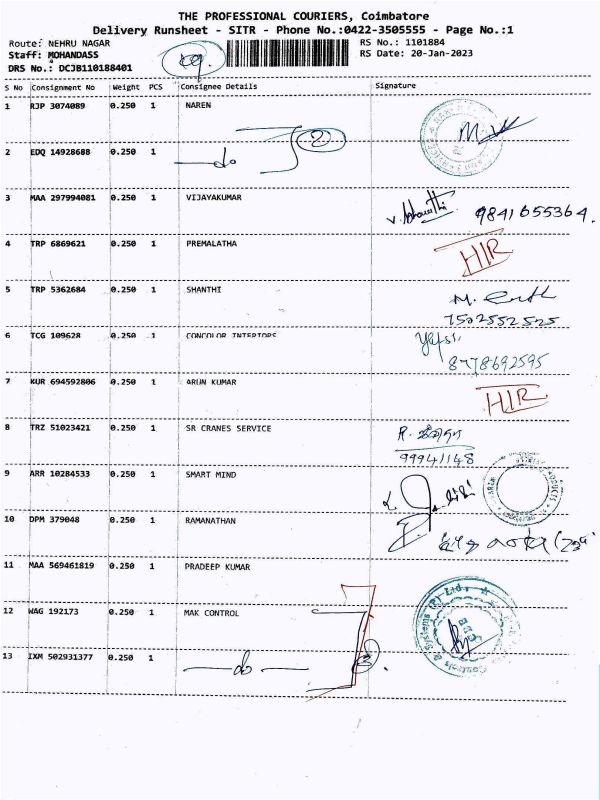 THE PROFESSIONAL COURIERS, Coimbatore
Delivery Runsheet - SITR - Phone No.:0422-3505555 - Page No.:1
Route: NEHRU NAGAR RS No.: 1101884
Staff: MOHANDASS RS Date: 20-Jan-2023
DRS No.: DCJB110188401
S No Consignment No Weight PCS Consignee Details Signature
1 RJP 3074089 0.250 1 NAREN
2 EDQ 14928688 0.250 1 do 2
3 MAA 297994081 0.250 1 VIJAYAKUMAR 9841655364.
4 TRP 6869621 0.250 1 PREMALATHA HIR
5 TRP 5362684 0.250 1 SHANTHI
7502552525
6 TCG 109628 0.250 1 CONCOLOR INTERIORS
8778692595
7 KUR 694592806 0.250 1 ARUN KUMAR HIR
8 TRZ 51023421 0.250 1 SR CRANES SERVICE
99941148
9 ARR 10284533 0.250 1 SMART MIND
10 DPM 379048 0.250 1 RAMANATHAN
11 MAA 569461819 0.250 1 PRADEEP KUMAR
12 WAG 192173 0.250 1 MAK CONTROL
13 IXM 502931377 0.250 1 do